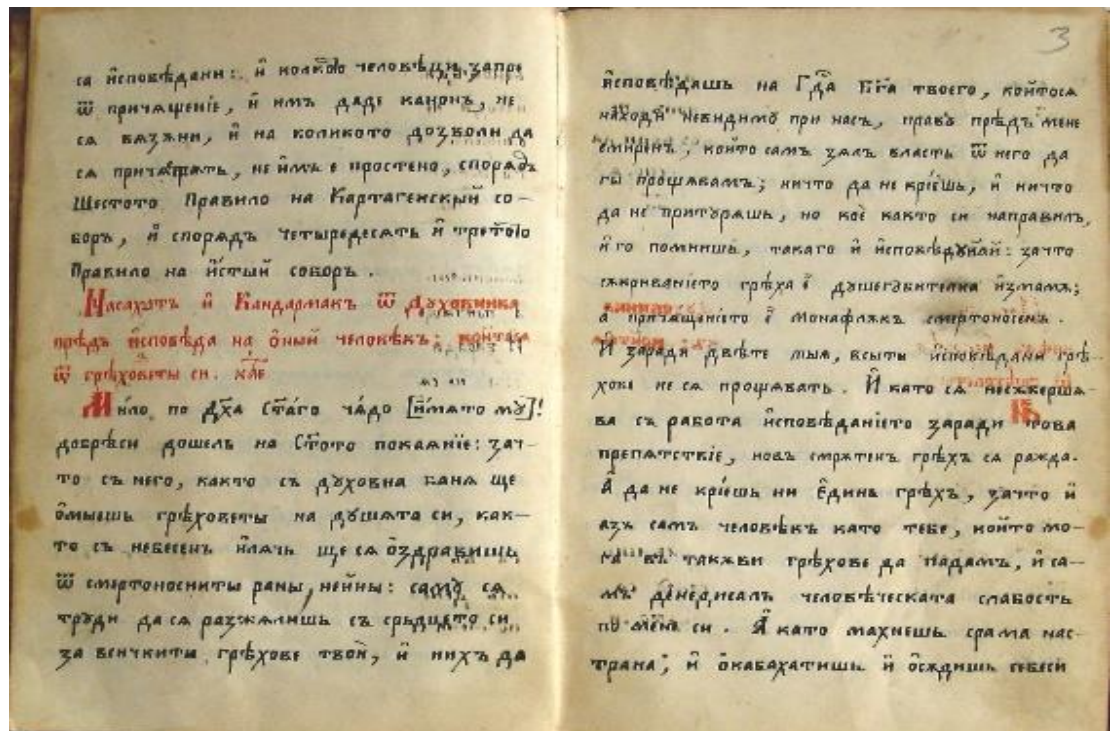 са и҆сповѣдани: и҆ колкѡто человѣци запре
ѿ причященїе, и҆ имъ даде канонъ, не
ся вязяни, и҆ на коликото дозволи да
ся причящятъ, не и҆мъ е простено, спорядъ
Шестото Правило на Картагенскый со–
боръ, и҆ спорядъ четыредесять и҆ третото
Правило на и҆стый соборъ.
Насахатъ и҆ Кандармакъ ѿ Духовника
прѣдъ и҆сповѣда на о҆ный человѣкъ;
ѿ грѣховеты си.
Мило по Дх҃а Ст҃аго чядо [и҆мято мꙋ]!
добрѣси дошелъ на Ст҃ото покаянїе: зач–
то съ него, както съ дꙋховна баня ще
о҆мыешь грѣховеты на дꙋшята си, как–
то съ небесенъ и҆лячь ще ся о҆здравишь
ѿ смертоносниты раны, нейны: самѡ ся
трꙋди да ся разжялишь съ срьдцето си
за всичкиты грѣхове твои, и҆ нихъ да
3
и҆сповѣдашь на Гд҃а Бг҃а твоего, койтося
находи невидимꙋ при насъ, правꙋ прѣдъ мене
смиренъ, който самъ зялъ власть ѿ него да
гы прощявамъ; ничто да не крїешь, и҆ ничто
да не притꙋряшь, но коѐ както си направилъ,
и҆ го помнишь, такаго и҆ и҆сповѣдꙋвай: зачто
сжкриванїето грѣха е҆ дꙋшегꙋбителна и҆змамя;
а причященїето е҆ монафляжъ смертоносенъ.
И҆ заради двѣте тыя, всыты и҆сповѣдани грѣ–
хове не ся прощявать. И҆ като ся несжвершя–
ва съ работа и҆сповѣданїето заради това
препятствїе, новъ смрътенъ грѣхъ ся ражда.
А҆ да не крїешь ни е҆динъ грѣхъ, зачто и҆
азъ самъ человѣкъ като тебе, който мо–
гꙋ въ такжви грѣхове да падамъ, и҆ са–
мъ человѣческата слабость
си. А҆ като махнешь срама нас–
трана, и҆ о҆кабахатишь и҆ о҆сждишь себеси